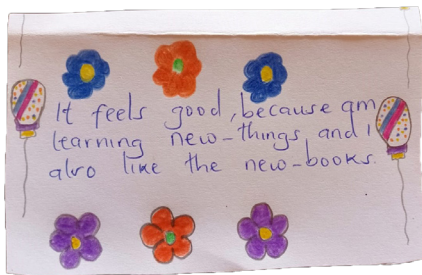 It feels good, because am
learning new-things and I
also like the new-books.